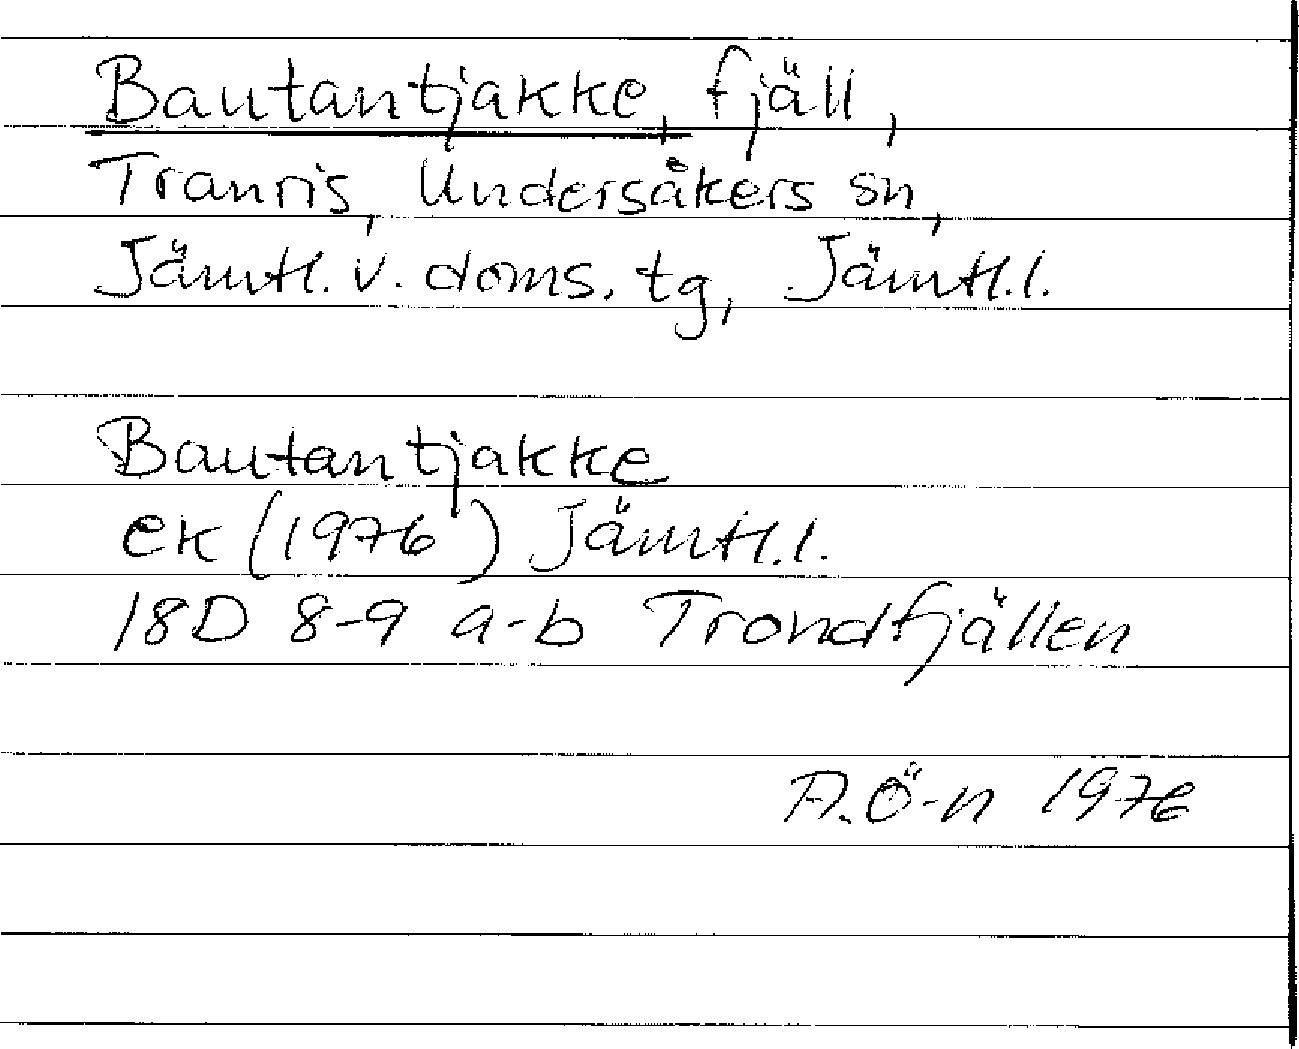 Bautantjakke, fjäll,
Tranris, Undersåkers sn,
Jämtl. v. doms. tg, Jämtl.l.
Bautantjakke
ek (1976) Jämtl.l.
18D 8-9 a-b Trondfjällen
A.Ö-n 1976